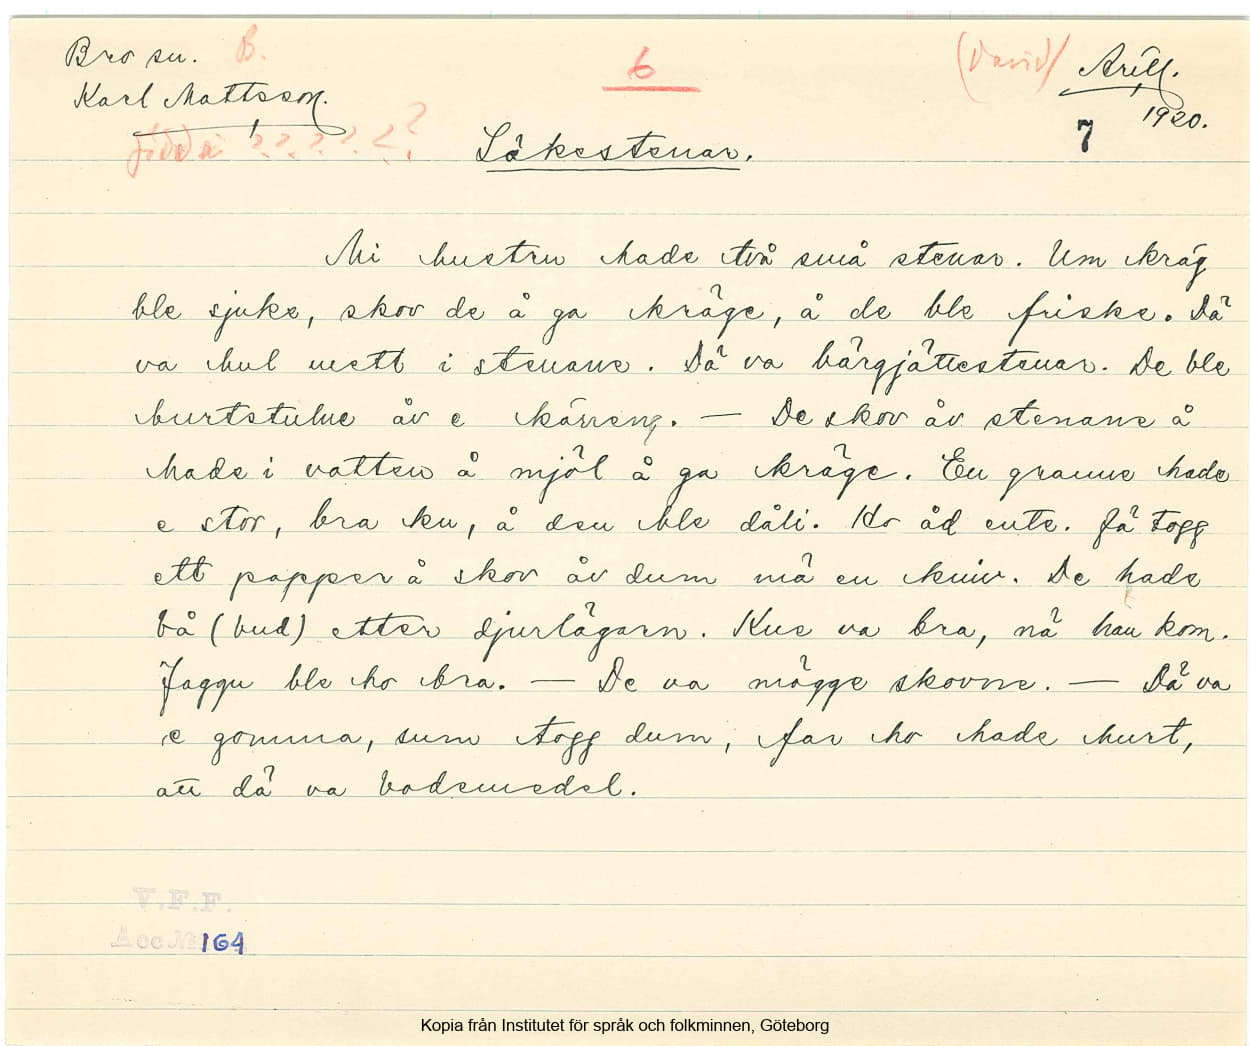 Bro sn. B. 6 (David) Arill.
Karl Mattsson. 1920.
född i ? ? ? ? ? ? 7
Läkestenar.
Mi hustru hade två små stenar. Um kräg
ble sjuke, skov de å ga kräge, å de ble friske. Dä
va hul nett i stenane. Dä va bärgjättestenar. De ble
burtstulne åv e käreng. — De skov åv stenane å
hade i vatten å mjöl å ga kräge. En granne hade
e stor, bra ku, å den ble dåli. Ho åd ente. Jä togg
ett papper å skov åv dum mä en kniv. De hade
bå (bud) etter djurlägarn. Kue va bra, nä han kom.
Jaggu ble ho bra. — De va mögge skovne. — Dä va
e gomma, sum togg dum, far ho hade hurt,
att dä va bodemedel.
V.F.F.
Acc № 164
Kopia från Institutet för språk och folkminnen, Göteborg